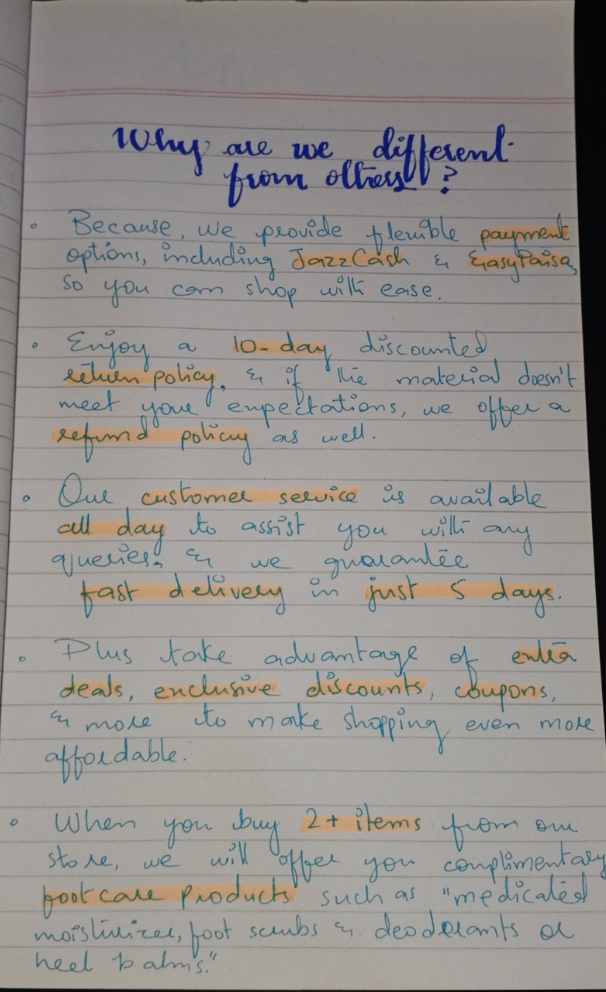 Why are we different
from others ?
• Because, we provide flexible payment
options, including JazzCash & EasyPaisa,
so you can shop with ease.
• Enjoy a 10-day discounted
return policy, & if the material doesn't
meet your expectations, we offer a
refund policy as well.
• Our customer service is available
all day to assist you with any
queries, & we guarantee
fast delivery in just 5 days.
• Plus take advantage of extra
deals, exclusive discounts, coupons,
& more to make shopping even more
affordable.
• When you buy 2+ items from our
store, we will offer you complimentary
foot care products such as "medicated
moisturizer, foot scrubs & deodorants or
heel balms."